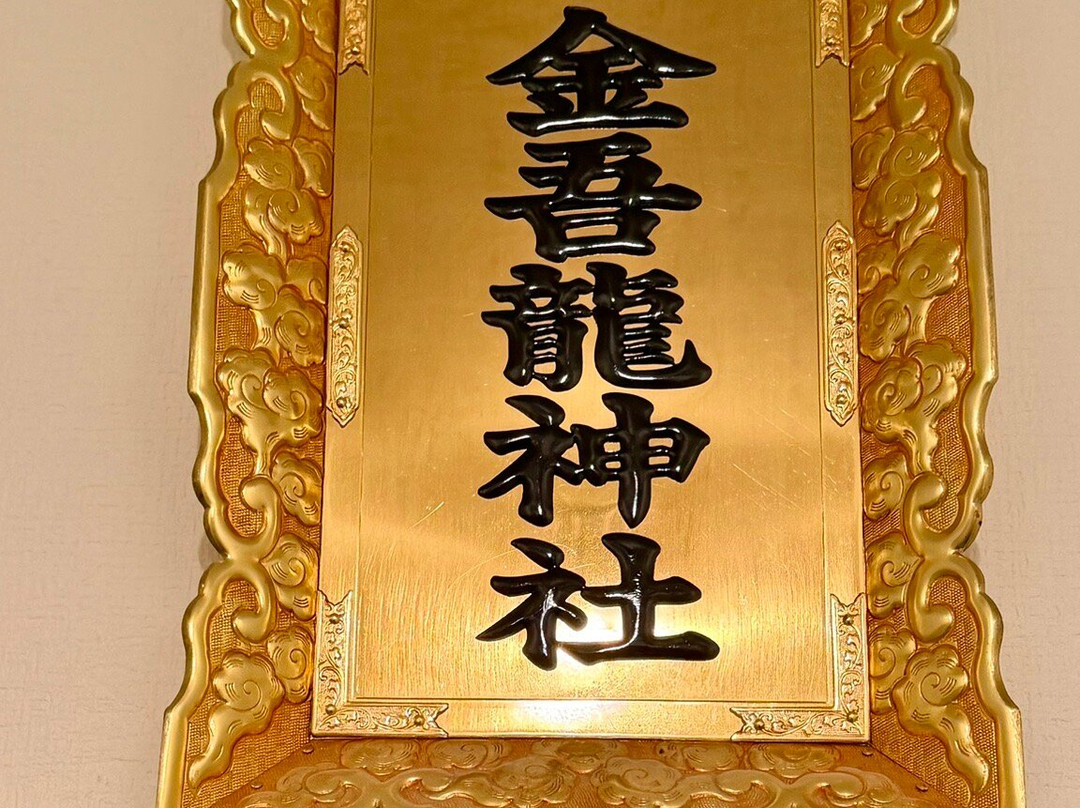 金吾龍神社